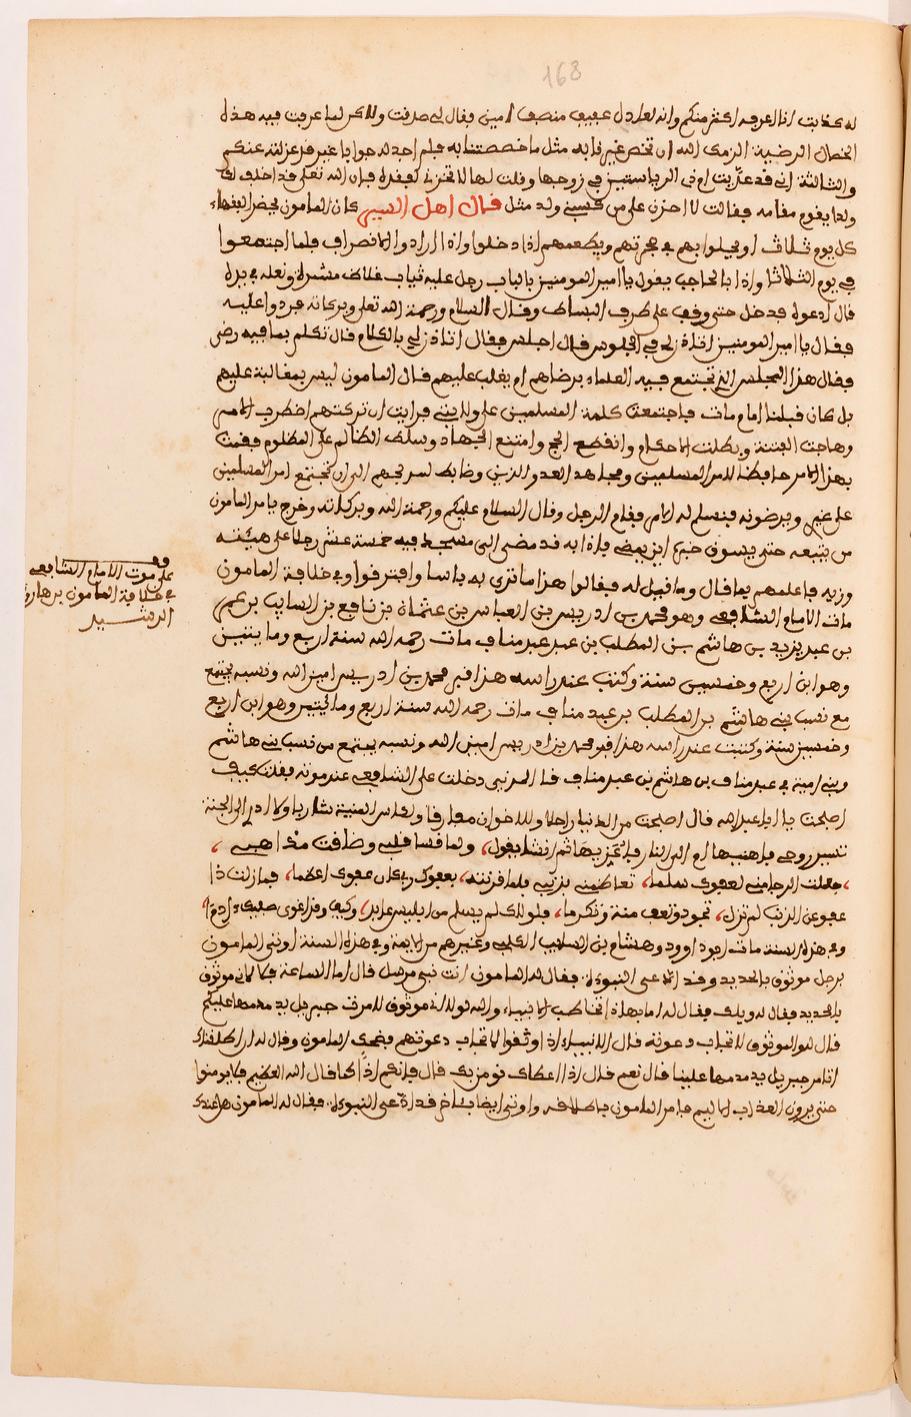 168
له كذابت انا اعرفه اكثر منكم وانه لعادل عفيف منصف امين فقال لي صدقت ولاكن لما عرفت فيه هذه
الخصال الرضية الزمك الله ان تخص غيرنا به مثل ما خصصتنا به فلم اجد له جوابا غير قد عزلته عنكم
والثالثة اني قد عزيت ام ذي الرياستين في زوجها وقلت لها لا تحزني لفقده فإن الله تعلى قد اخلف لك
ولدا يقوم مقامه فقالت لا احزن على من كسبني ولد مثل قال اهل السير كان المامون يحضر الفقهاء
كل يوم ثلاثاء ويخلوا بهم في حجرتهم ويطعمهم اذا دخلوا واذا ارادوا الانصراف فلما اجتمعوا
في يوم الثلاثا واذا بالحاجب يقول يا امير المومنين بالباب رجل عليه ثياب غلاظ مشمرة ونعله في يده
قال ادعوه فدخل حتى وقف على طرف البساط وقال السلام ورحمة الله تعلى وبركاته فردوا عليه
فقال يا امير المومنين اتاذن لي في الجلوس قال اجلس فقال اتاذن لي بالكلام قال تكلم بما فيه رضى
فقال هذا المجلس الذي تجتمع فيه العلماء برضاهم ام بغلب عليهم قال المامون ليس بمغالبة عليهم
بل كان قبلنا امام مات فاجتمعت كلمة المسلمين على ولايتي فرايت ان تركتهم اضطرب الامر
وهاجت الفتنة وبطلت الاحكام وانقطع الحج وامتنع الجهاد وسلط الظالم على المظلوم فقمت
بهذا الامر حافظا لامر المسلمين ومجاهد العدو الذين وضابط لسرحهم الى ان تجتمع امر المسلمين
على غيري ويرضونه فنسلم له الامر فقام الرجل وقال السلام عليكم ورحمة الله وبركاته وخرج فامر المامون
من يتبعه حتى يسوق خبره اين يمضي فإذا به قد مضى الى مسجد فيه خمسة عشر رجلا على هيئته
وزيه فاعلمهم بما قال وما قيل له فقالوا هذا ما ترى به باسا وافترقوا وفي خلافة المامون
مات الامام الشافعي وهو محمد بن ادريس بن العباس بن عثمان بن نافع بن السايب بن عبيد
بن عبد يزيد بن هاشم بن المطلب بن عبد عبد مناف مات رحمه الله سنة اربع ومايتين
وهو ابن اربع وخمسين سنة وكتب عند راسه هذا قبر محمد بن ادريس امين الله ونسبه يجتمع
مع نسب بني هاشم بن المطلب بن عبد مناف مات رحمه الله سنة اربع ومايتين وهو ابن اربع
وخمسين سنة وكتبت عند راسه هذا قبر محمد بن ادريس امين الله ونسبه يجتمع من نسب بني هاشم
وبني امية في عبد مناف بن هاشم بن عبد مناف قال المزني دخلت على الشافعي عند موته فقلت كيف
اصبحت يا ابا عبد الله قال اصبحت من الدنيا راحلا وللاخوان مفارقا ولكاس المنية شاربا ولا ادري الى الجنة
تسير روحي فاهنيها ام الى النار فاعزيها ثم انشا يقول، ولما قسا قلبي وضاقت مذاهبي،
، جعلت الرجا مني لعفوك سلما، تعاظمني ذنبي فلما قرنته، بعفوك ربي كان عفوك اعظما، فما زلت ذا
عفو عن الذنب لم تزل، تجود وتعف منة وتكرما، فلولاك لم يسلم من ابليس عابد، وكيف وقد اغوى صفيك ءادما،
وفي هذه السنة مات ابو داوود وهشام بن السايب الكلبي وغيرهم من الايمة وفي هذه السنة اوتي المامون
برجل موثوق بالحديد وقد ادعى النبوءة، فقال له المامون انت نبي مرسل قال اما الساعة فلا لاني موثوق
بالحديد فقال له ويلك فقال له اما بهاذا تخاطب الانبياء والله لولا انه موثوق لامرت جبريل يدمدمها عليكم
قال له والموثوق لا تجاب دعوته قال الانبياء اذا وثقوا لا تجاب دعوتهم فضحك المامون وقال له ان اطلقناك
اتامر جبريل يدمدمها علينا قال نعم قال اذا اعطاك تومن بي قال فإنهم اذا كما قال الله العظيم فلا يومنوا
حتى يروا العذاب الاليم فامر المامون باطلاقه واوتي ايضا بئاخر قد ادعى النبوءة، فقال له المامون هل عندك
قف
على موت الامام الشافعي
في خلافة المامون بن هارون
الرشيد